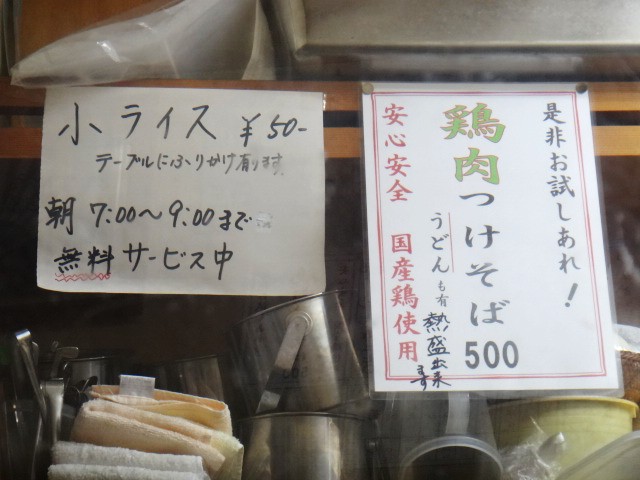 小ライス ¥50-
テーブルにふりかけ有ります
朝 7:00〜9:00まで
無料サービス中
是非お試しあれ！
鶏肉つけそば 500
うどんも有
熱盛出来ます
安心安全 国産鶏使用